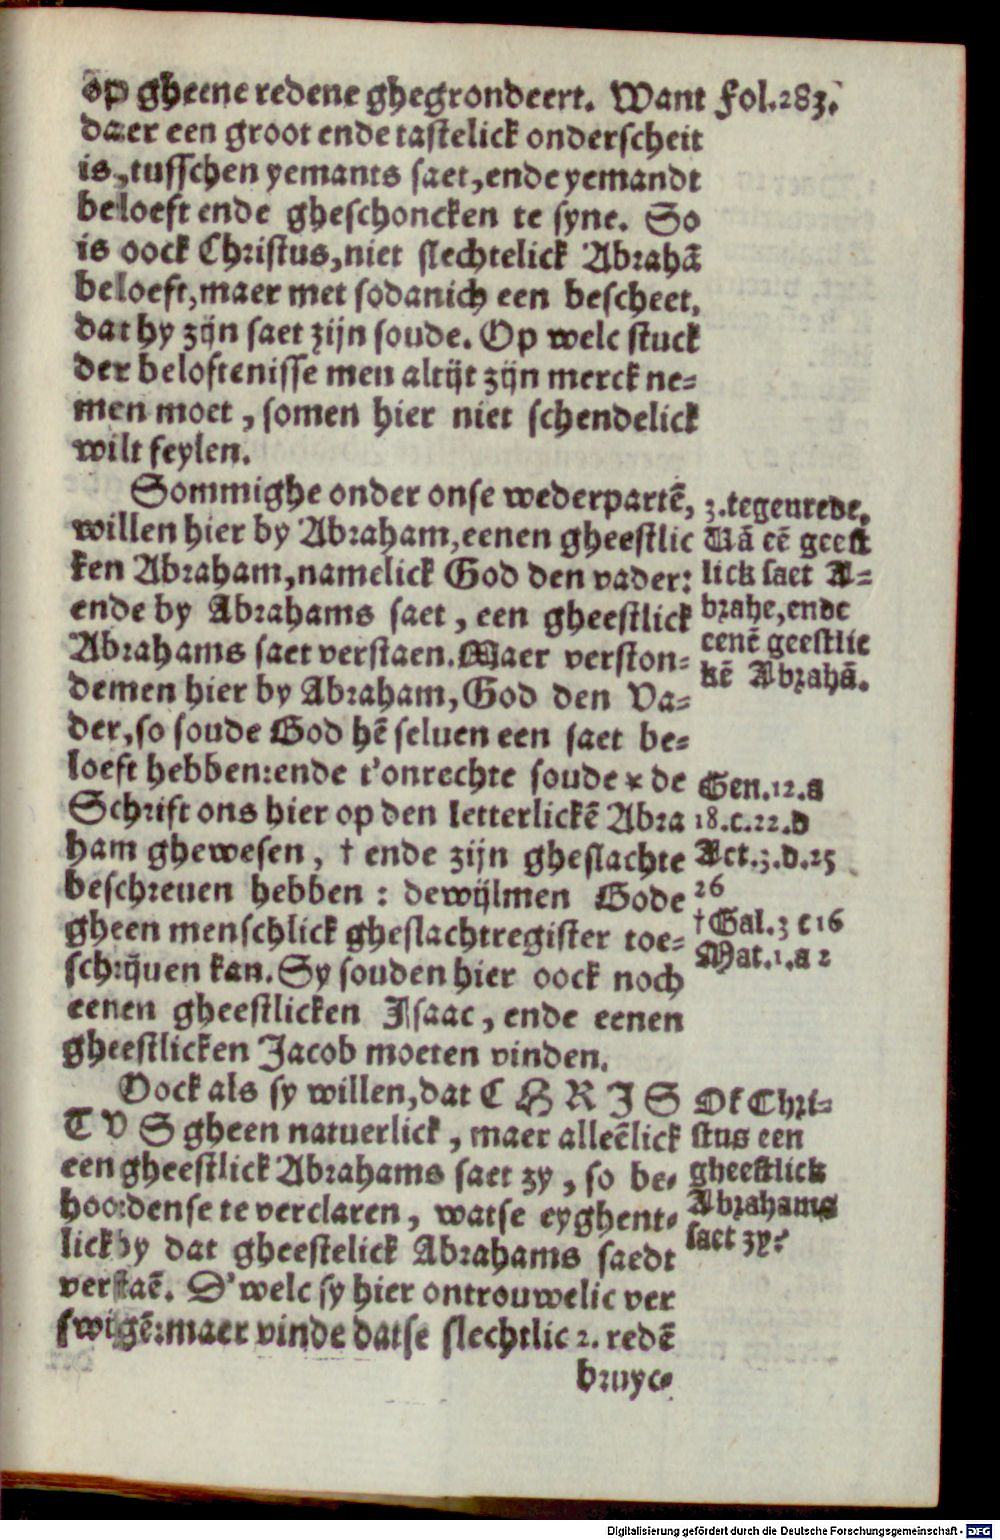 op gheene redene ghegrondeert. Want
Fol.283.
daer een groot ende tastelick onderscheit
is, tusschen yemants saet, ende yemandt
beloeft ende gheschoncken te syne. So
is oock Christus, niet slechtelick Abrahā
beloeft, maer met sodanich een bescheet,
dat hy zijn saet zijn soude. Op welc stuck
der beloftenisse men altijt zijn merck ne=
men moet, somen hier niet schendelick
wilt feylen.
Sommighe onder onse wederpartē,
willen hier by Abraham, eenen gheestlic
ken Abraham, namelick God den vader:
ende by Abrahams saet, een gheestlick
Abrahams saet verstaen. Maer verston=
demen hier by Abraham, God den Va=
der, so soude God hē seluen een saet be=
loeft hebben: ende t'onrechte soude * de
Schrift ons hier op den letterlickē Abra
ham ghewesen, † ende zijn gheslachte
beschreuen hebben: dewijlmen Gode
gheen menschlick gheslachtregister toe=
schrijuen kan. Sy souden hier oock noch
eenen gheestlicken Isaac, ende eenen
gheestlicken Jacob moeten vinden.
3. tegenrede.
Vā eē geest
lick saet A=
brahe, ende
eenē geestlic
kē Abrahā.
Gen.12.a
18.c.22.d
Act.3.d.25
26
† Gal.3 c 16
Mat.1.a 2
Oock als sy willen, dat C H R I S
T V S gheen natuerlick, maer alleēlick
een gheestlick Abrahams saet zy, so be=
hoordense te verclaren, watse eyghent=
lick by dat gheestelick Abrahams saedt
verstaē. D'welc sy hier ontrouwelic ver
swigē: maer vinde datse slechtlic 2. redē
Of Chri=
stus een
gheestlick
Abrahams
saet zy?
bruyc=
Digitalisierung gefördert durch die Deutsche Forschungsgemeinschaft - DFG